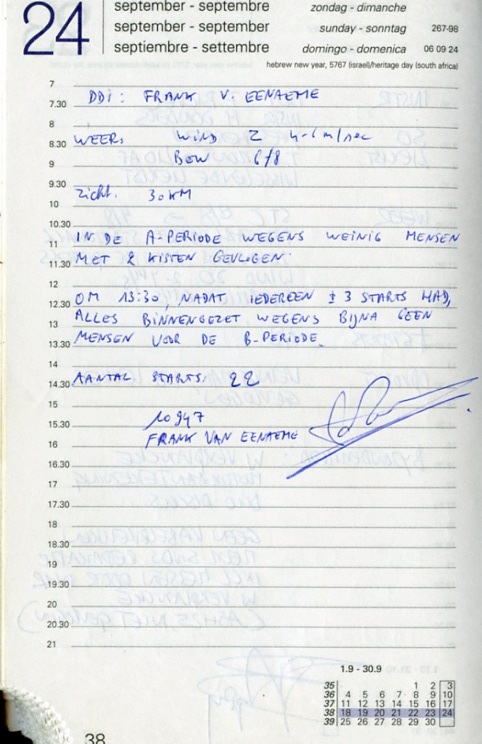 24
september - september
september - september
septiembre - settembre
zondag - dimanche
sunday - sonntag 267-98
domingo - domenica 06 09 24
hebrew new year, 5767 (israel)/heritage day (south africa)
7
7.30 DDI: FRANK V. EENAEME
8
8.30 WEER: WIND Z 4-6 m/sec
9 BEW 6/8
9.30 ZICHT. 30 KM
10
10.30
11 IN DE A-PERIODE WEGENS WEINIG MENSEN
11.30 MET 2 KISTEN GEVLOGEN.
12
12.30 OM 13:30, NADAT IEDEREEN ± 3 STARTS HAD,
13 ALLES BINNENGEZET WEGENS BIJNA GEEN
13.30 MENSEN VOOR DE B-PERIODE.
14
14.30 AANTAL STARTS: 22
15
15.30 10947
16 FRANK VAN EENAEME
16.30
17
17.30
18
18.30
19
19.30
20
20.30
21
1.9 - 30.9
35 1 2 3
36 4 5 6 7 8 9 10
37 11 12 13 14 15 16 17
38 18 19 20 21 22 23 24
39 25 26 27 28 29 30
38